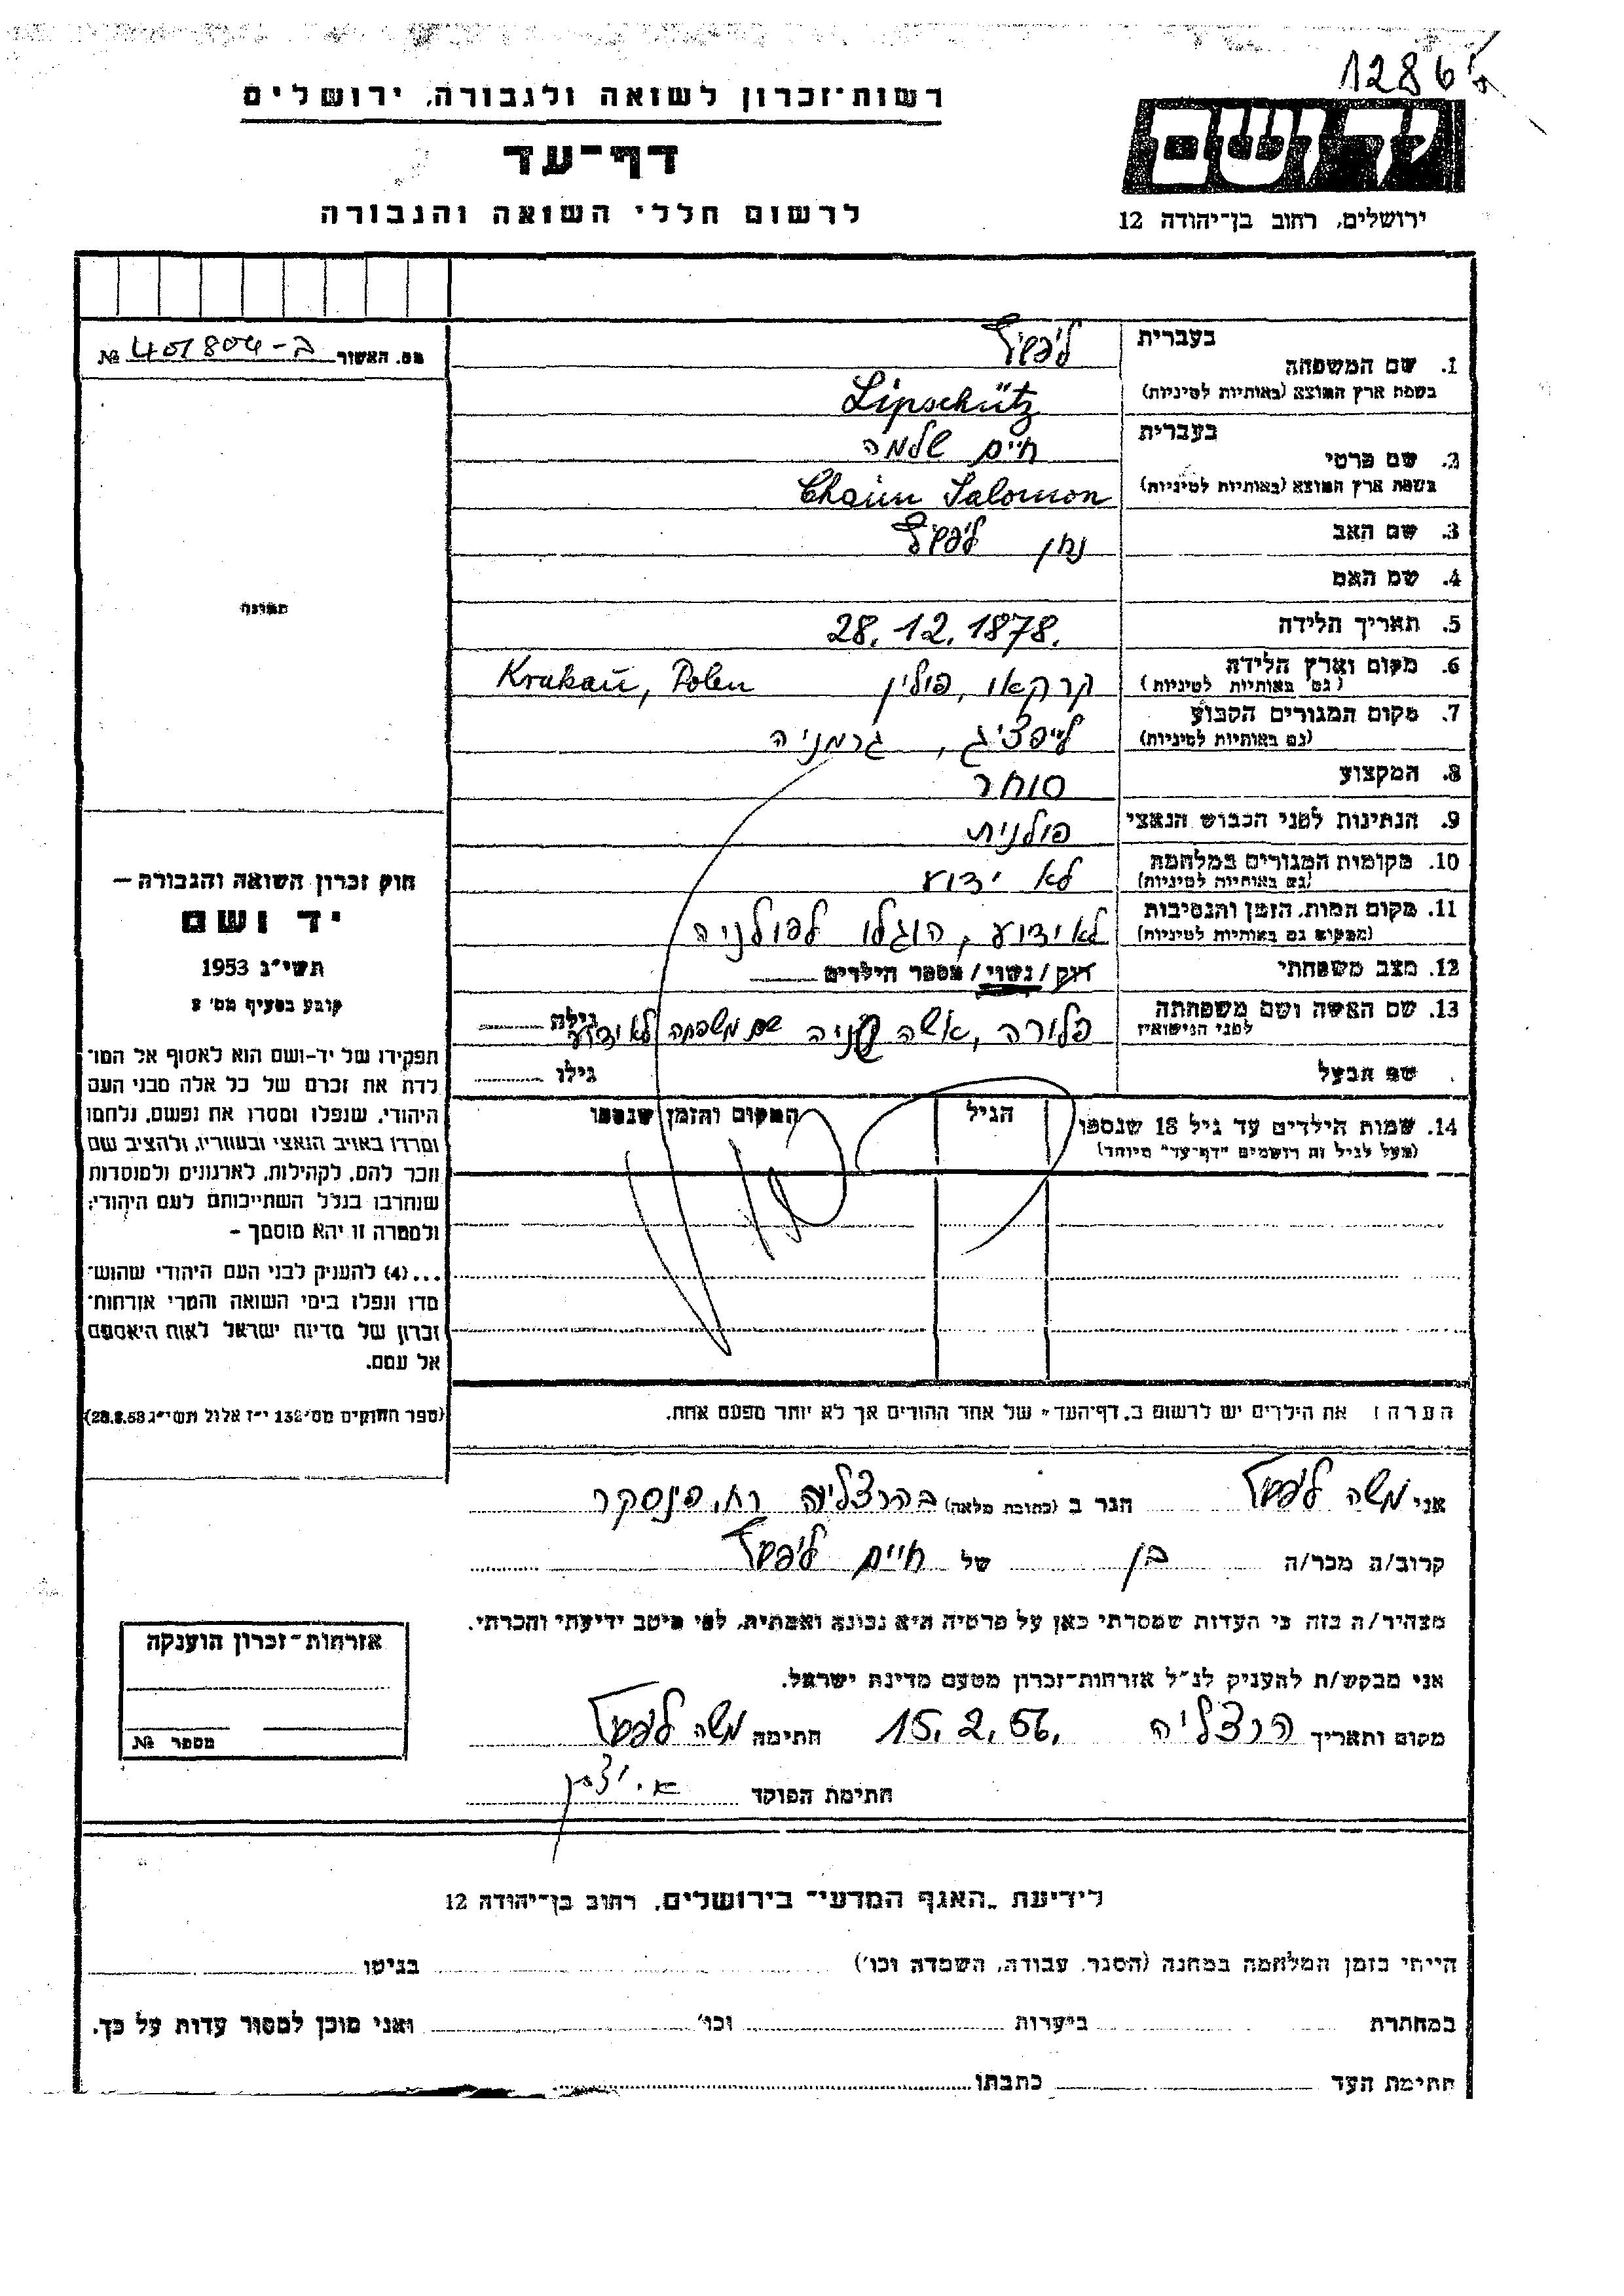 1286
רשות־זכרון לשואה ולגבורה, ירושלים
דף־עד
לרשום חללי השואה והגבורה
ירושלים, רחוב בן־יהודה 12
מס. האשור ב-401804 №
תמונה
חוק זכרון השואה והגבורה —
יד ושם
תשי״ג 1953
קובע בסעיף מס׳ 2
תפקידו של יד-ושם הוא לאסוף אל המו־
לדת את זכרם של כל אלה מבני העם
היהודי, שנפלו ומסרו את נפשם, נלחמו
ומרדו באויב הנאצי ובעוזריו, ולהציב שם
וזכר להם, לקהילות, לארגונים ולמוסדות
שנחרבו בגלל השתייכותם לעם היהודי;
ולמטרה זו יהא מוסמך —
...(4) להעניק לבני העם היהודי שהוש־
מדו ונפלו בימי השואה והמרי אזרחות־
זכרון של מדינת ישראל לאות היאספם
אל עמם.
(ספר החוקים מס׳ 132 י״ז אלול תשי״ג 28.8.53)
1. שם המשפחה בעברית ליפשיץ
בשפת ארץ המוצא (באותיות לטיניות) Lipschütz
2. שם פרטי בעברית חיים שלמה
בשפת ארץ המוצא (באותיות לטיניות) Chaim Salomon
3. שם האב נתן ליפשיץ
4. שם האם
5. תאריך הלידה 28.12.1878.
6. מקום וארץ הלידה (גם באותיות לטיניות) קרקאו, פולין Krakau, Polen
7. מקום המגורים הקבוע (גם באותיות לטיניות) לייפציג, גרמניה
8. המקצוע סוחר
9. הנתינות לפני הכבוש הנאצי פולנית
10. מקומות המגורים במלחמה (גם באותיות לטיניות) לא ידוע
11. מקום המות, הזמן והנסיבות (המקום גם באותיות לטיניות) לא ידוע, הוגלו לפולניה
12. מצב משפחתי רוק/נשוי/מספר הילדים
13. שם האשה ושם משפחתה לפני הנישואין פלורה, אשה שניה שם משפחה לא ידוע גילה
שם הבעל גילו
14. שמות הילדים עד גיל 18 שנספו הגיל המקום והזמן שנספו
(מעל לגיל זה רושמים "דף־עד" מיוחד)
הערה: את הילדים יש לרשום ב„דף־העד״ של אחד ההורים אך לא יותר מפעם אחת.
אני משה ליפשיץ הגר ב (כתובת מלאה) בהרצליה רח. פינסקר
קרוב/ה מכר/ה בן של חיים ליפשיץ
מצהיר/ה בזה כי העדות שמסרתי כאן על פרטיה היא נכונה ואמתית, לפי מיטב ידיעתי והכרתי.
אני מבקש/ת להעניק לנ״ל אזרחות־זכרון מטעם מדינת ישראל.
מקום ותאריך הרצליה 15.2.56. חתימה משה ליפשיץ
חתימת הפוקד
אזרחות־זכרון הוענקה
מספר №
לידיעת „האגף המדעי״ בירושלים, רחוב בן־יהודה 12
הייתי בזמן המלחמה במחנה (הסגר, עבודה, השמדה וכו׳) בגיטו
במחתרת ביערות וכו׳ ואני מוכן למסור עדות על כך.
חתימת העד כתבתו